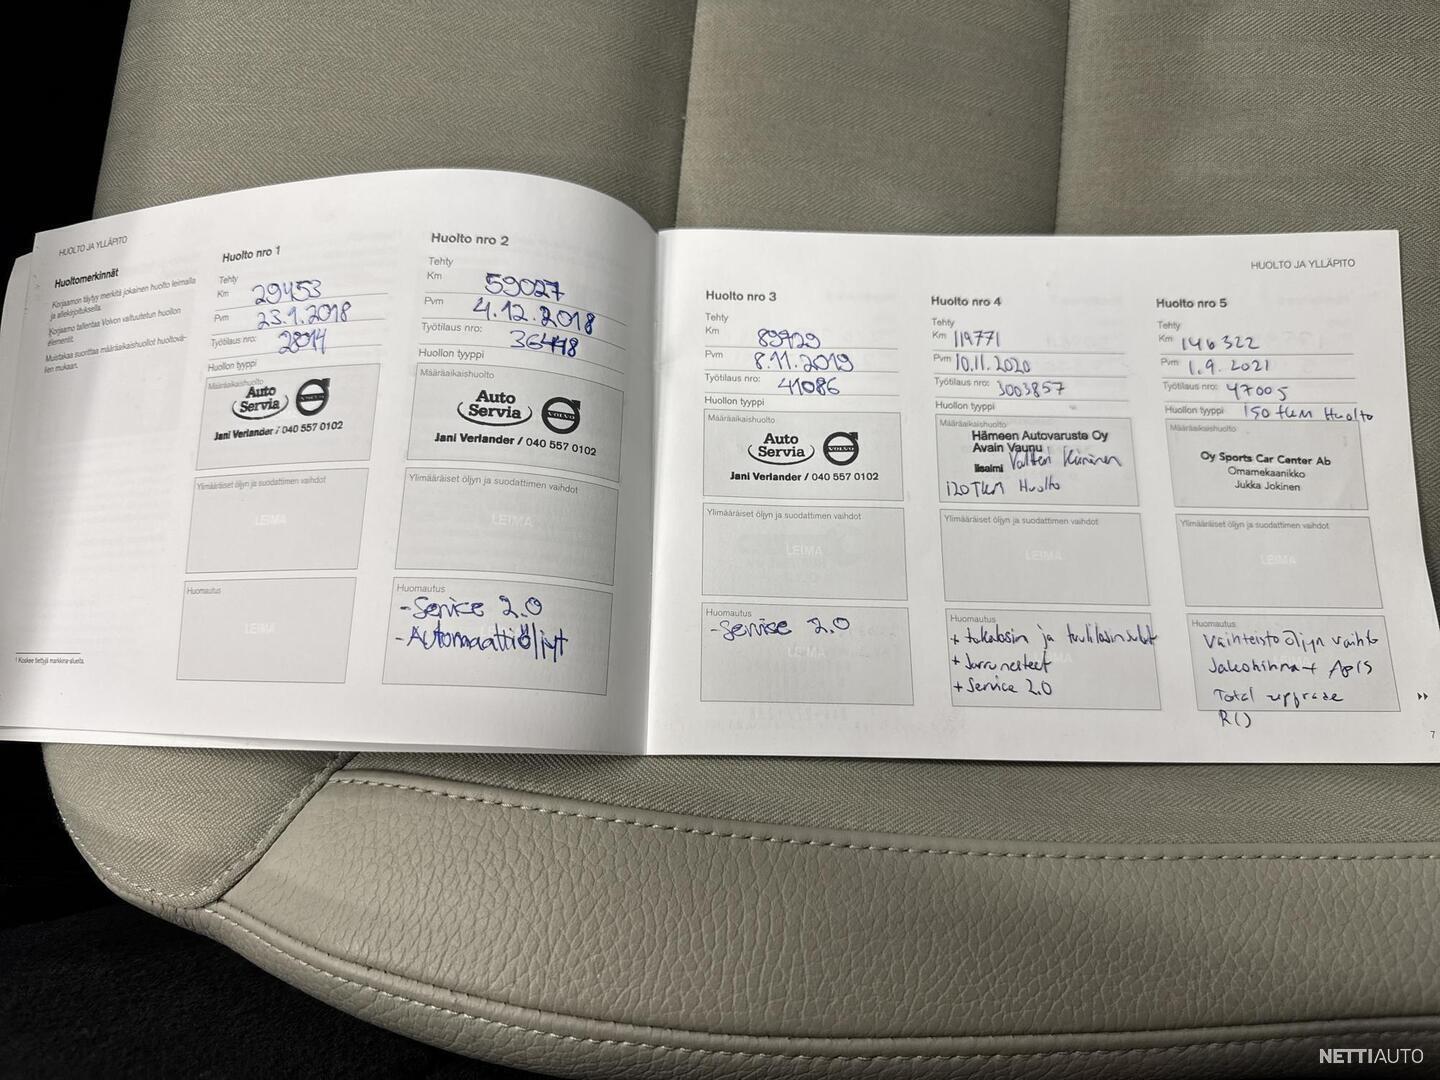 HUOLTO JA YLLÄPITO
Huoltomerkinnät
Korjaamon täytyy merkitä jokainen huolto leimalla
ja allekirjoituksella.
Korjaamo tallentaa Volvon valtuutetun huollon
elementit.
Muistakaa suorittaa määräaikaishuollot huoltovä-
lien mukaan.
¹ Koskee tiettyjä markkina-alueita.
Huolto nro 1
Tehty
Km 29453
Pvm 23.1.2018
Työtilaus nro: 28014
Huollon tyyppi
Määräaikaishuolto
Auto
Servia
VOLVO
Jani Verlander / 040 557 0102
Ylimääräiset öljyn ja suodattimen vaihdot
LEIMA
Huomautus
LEIMA
Huolto nro 2
Tehty
Km 59027
Pvm 4.12.2018
Työtilaus nro: 36448
Huollon tyyppi
Määräaikaishuolto
Auto
Servia
VOLVO
Jani Verlander / 040 557 0102
Ylimääräiset öljyn ja suodattimen vaihdot
LEIMA
Huomautus
-Service 2.0
-Automaattiöljyt
HUOLTO JA YLLÄPITO
Huolto nro 3
Tehty
Km 89729
Pvm 8.11.2019
Työtilaus nro: 41086
Huollon tyyppi
Määräaikaishuolto
Auto
Servia
VOLVO
Jani Verlander / 040 557 0102
Ylimääräiset öljyn ja suodattimen vaihdot
LEIMA
Huomautus
-Service 2.0
LEIMA
Huolto nro 4
Tehty
Km 119771
Pvm 10.11.2020
Työtilaus nro: 3003857
Huollon tyyppi
Määräaikaishuolto
Hämeen Autovaruste Oy
Avain Vaunu
Iisalmi Valtteri
120 TKM Huolto
Ylimääräiset öljyn ja suodattimen vaihdot
LEIMA
Huomautus
+ takalasin ja tuulilasinsulat
+ Jarrunesteet
+ Service 2.0
Huolto nro 5
Tehty
Km 146322
Pvm 1.9.2021
Työtilaus nro: 47005
Huollon tyyppi 150 tkm Huolto
Määräaikaishuolto
Oy Sports Car Center Ab
Omamekaanikko
Jukka Jokinen
Ylimääräiset öljyn ja suodattimen vaihdot
LEIMA
Huomautus
Vaihteistoöljyn vaihto
Jakohihna +
Total upgrade
R()
7
NETTIAUTO